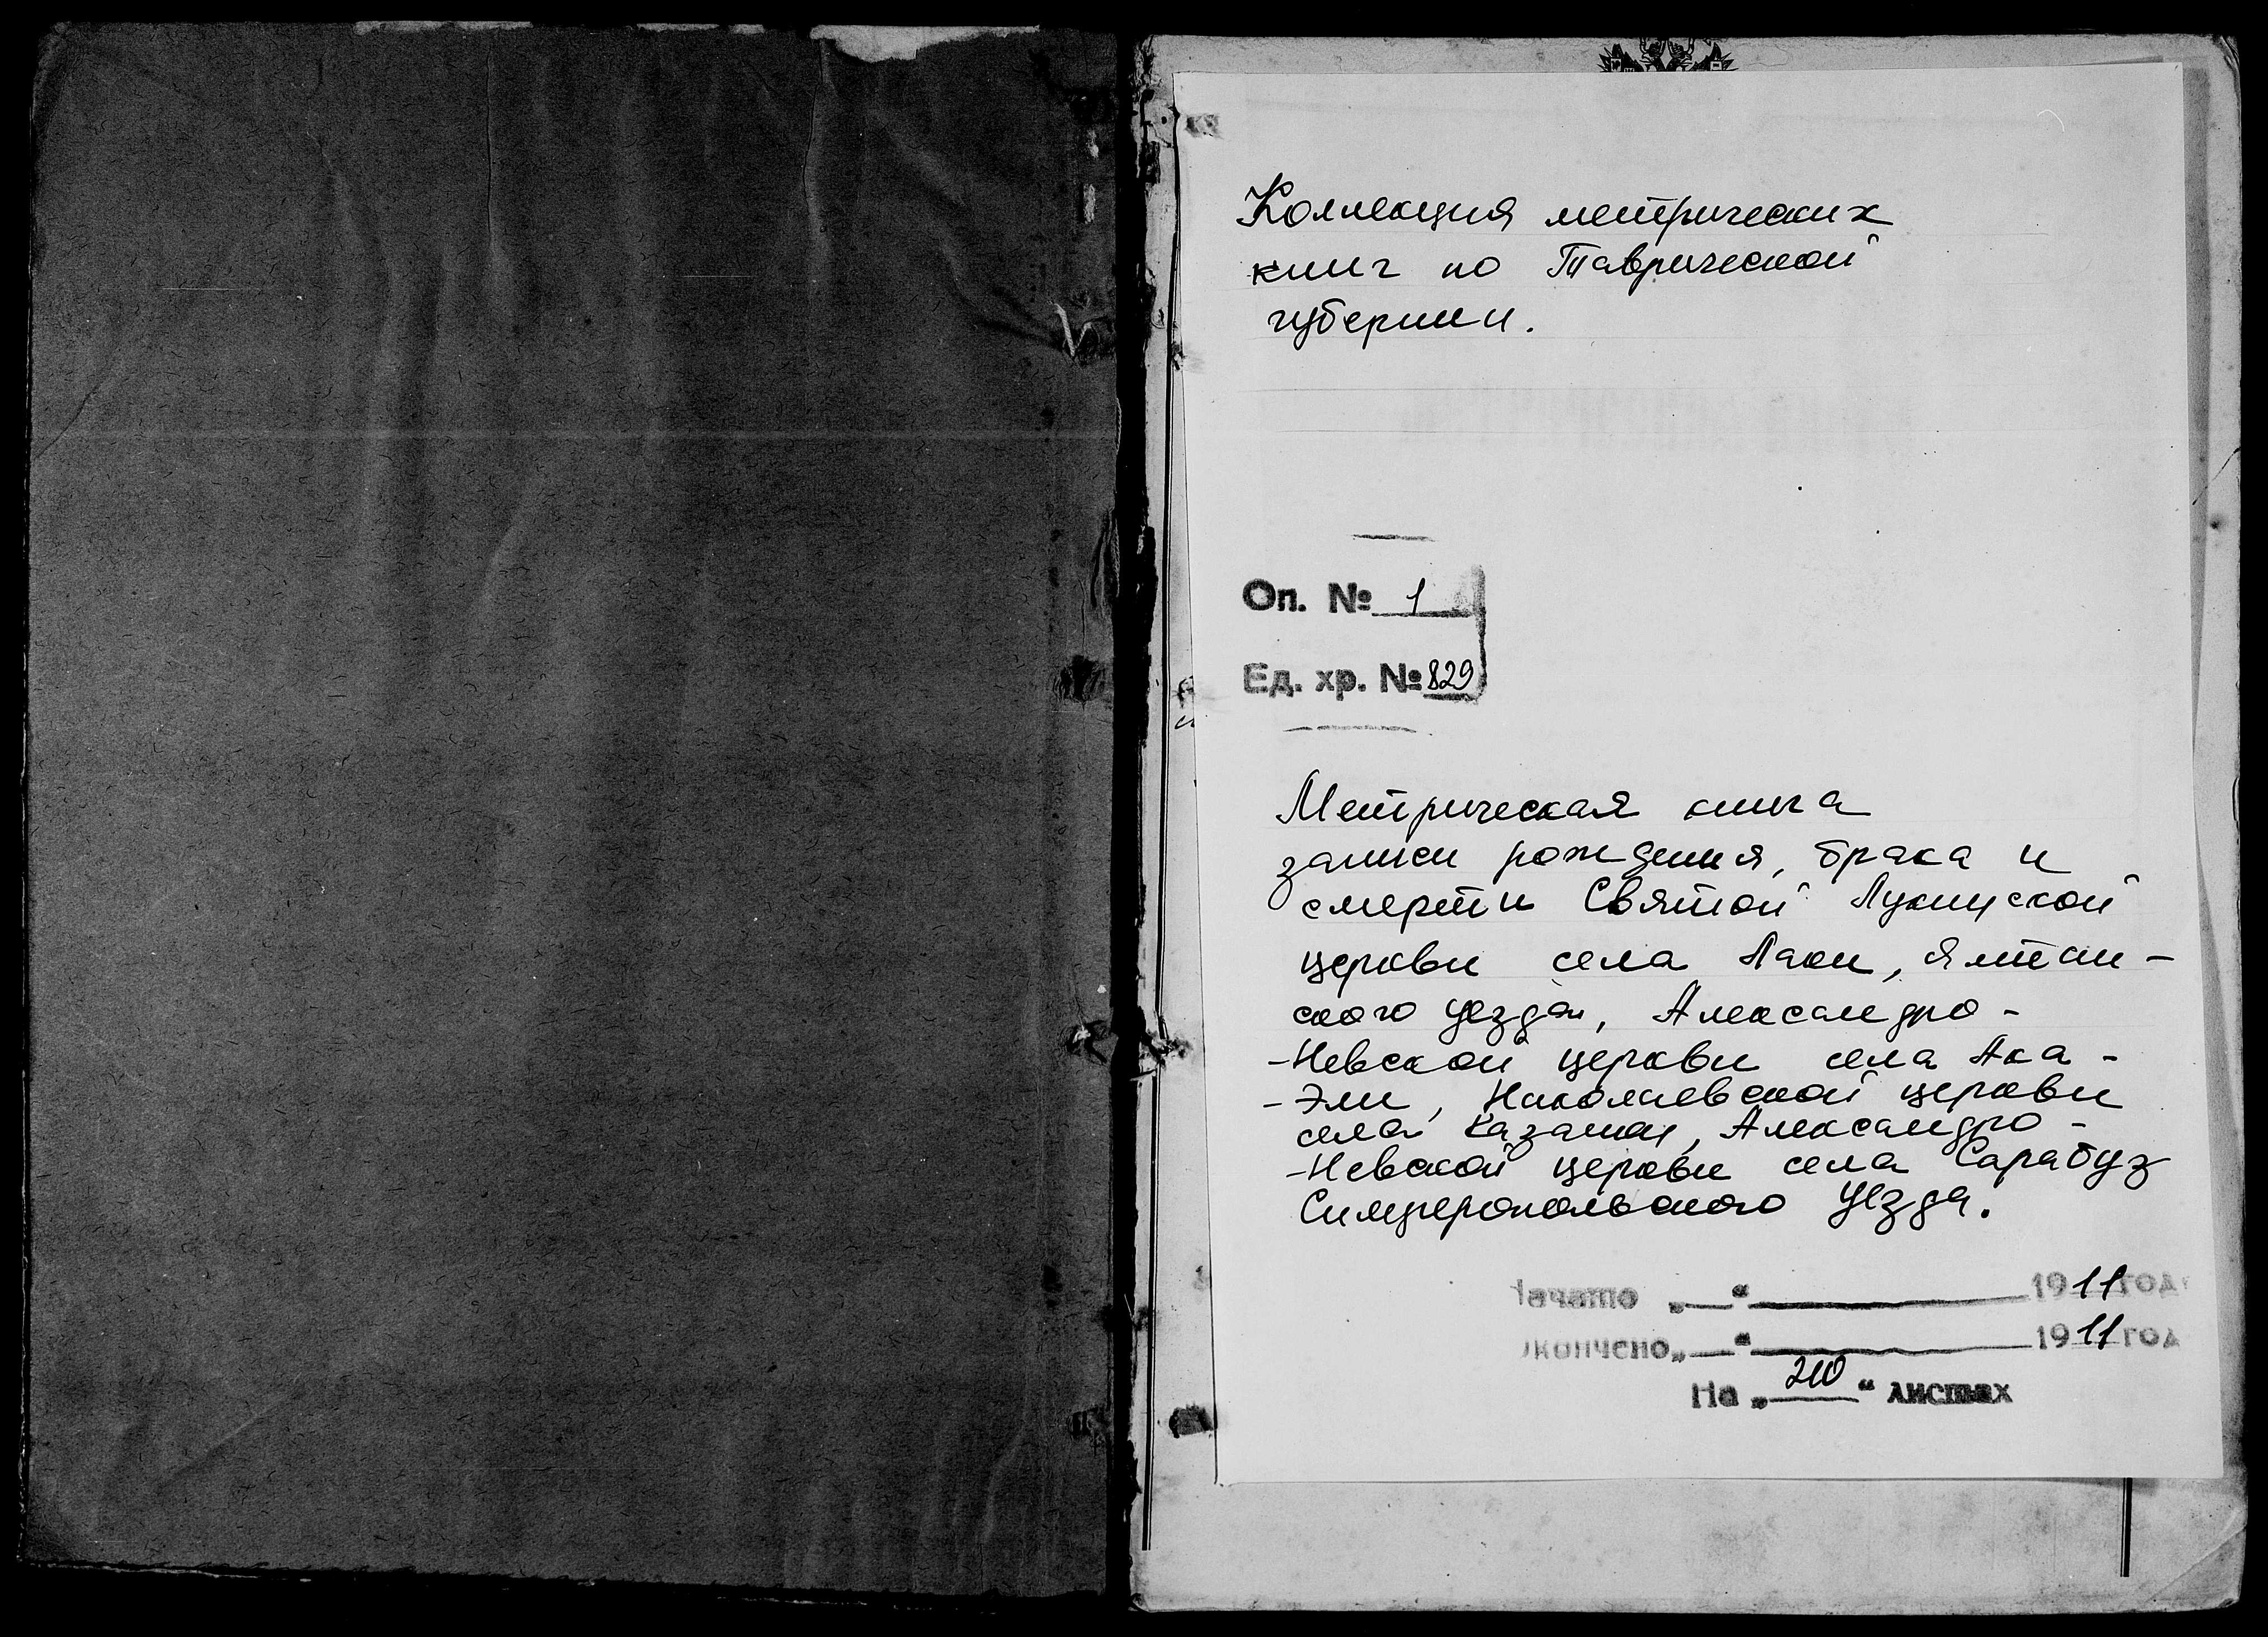 Коллекция метрических
книг по Таврической
губернии.
Оп. № 1
Ед. хр. № 829
Метрическая книга
записи рождения, брака и
смерти Святой Лукинской
церкви села Лаки, Ялтин-
ского уезда, Александро-
-Невской церкви села Ака-
-Эли, Николаевской церкви
села Казанлы, Александро-
-Невской церкви села Сарабуз
Симферопольского уезда.
Начато „__“ 1911 год
Окончено „__“ 1911 год
На „210“ листах